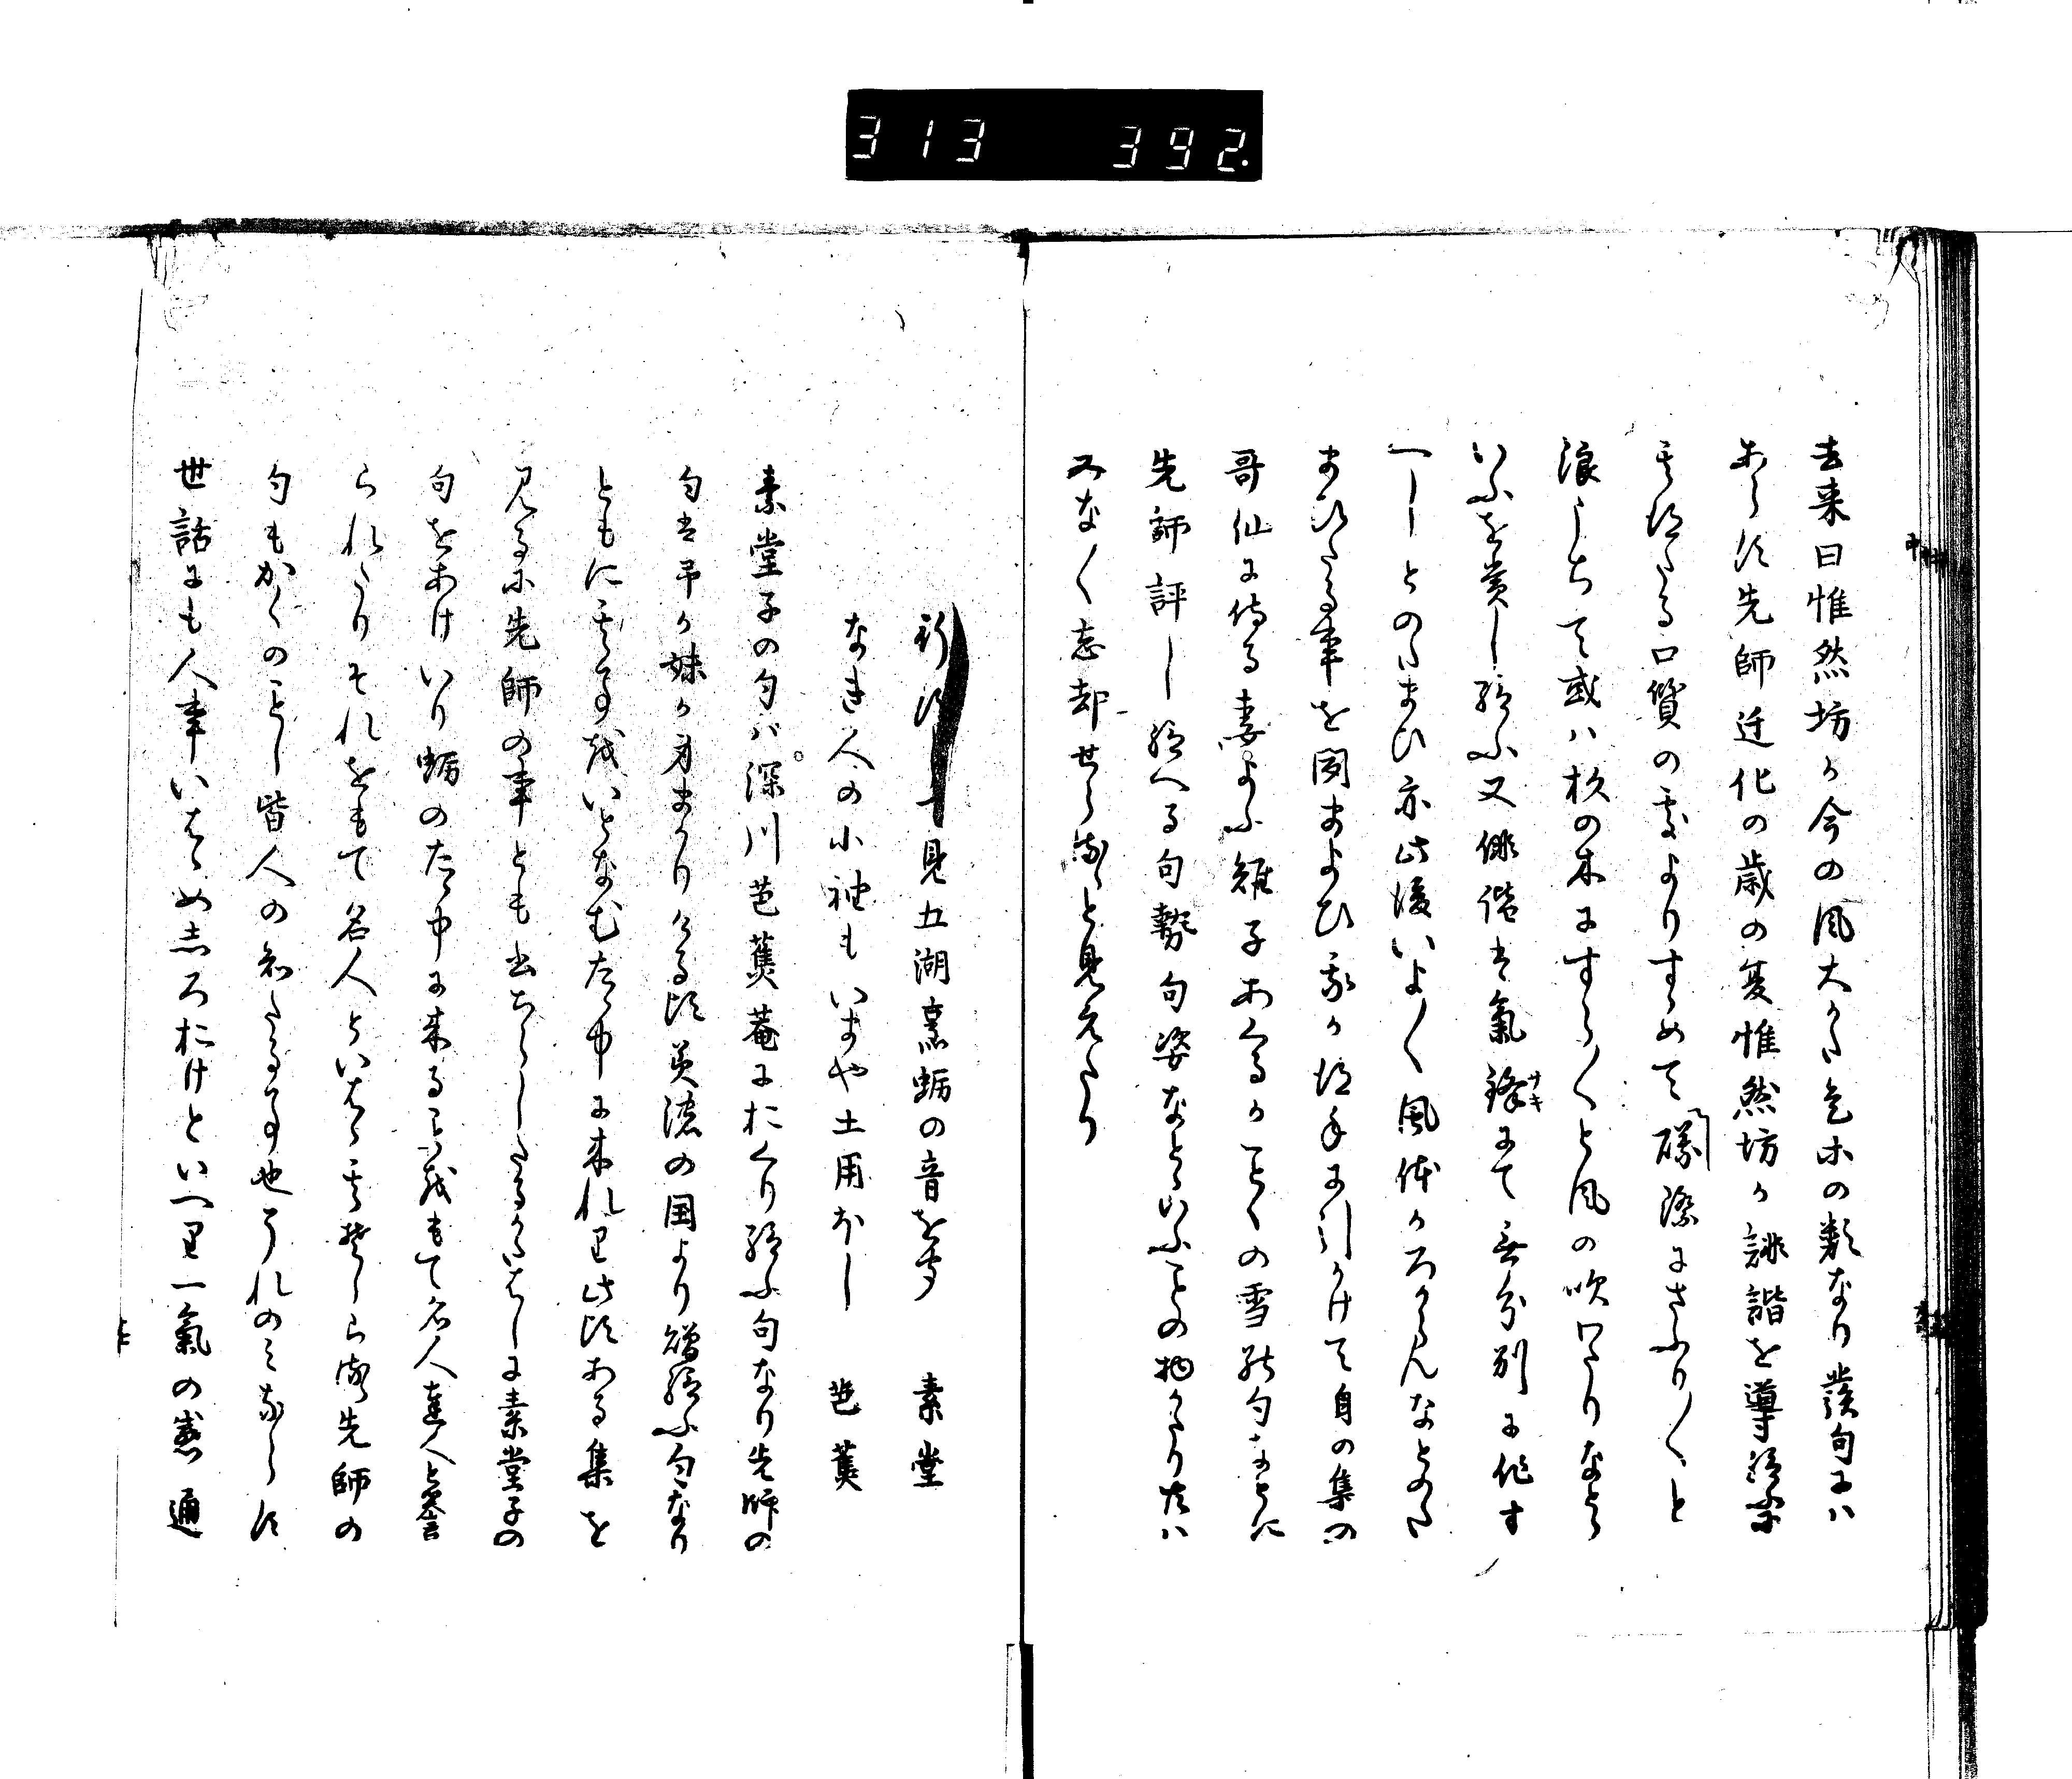 313 392.
去来曰惟然坊か今の風大かた是ホの類なり發句にハ
あらす先師迁化の歳の夏惟然坊か誹諧を導給ふに
其得たる口質の處よりすゝめて磯際にさふり〱と
浪うちて或ハ杉の木にすら〱と風の吹わたりなと
いふを賞し給ふ又俳諧は氣鋒にて無分別に作す
サキ
へしとのたまひ亦此後いよ〱風体かろからんなとのた
まひたる事を聞まよひ我か得手に引かけて自の集の
哥仙に侍る妻よふ雉子あくるかことくの雪の句なとに
先師評し給へる句勢句姿なといふことの物かたりハ
みな〱忘却せらると見えたり
一見五湖煮蛎の音を夕 素堂
なき人の小袖もいまや土用ほし 芭蕉
素堂子の句ハ深川芭蕉菴におくり給ふ句なり先師の
句は予か妹か身まかりける比美濃の国より贈給ふ句なり
ともに其事をいとなむたゝ中に来れり此比ある集を
見るに先師の事とも書ちらしたるかたはしに素堂子の
句をあけいり蛎のたゝ中に来るを以もて名人達人と誉
られたりそれをもて名人といはゝ其誉らるゝ先師の
句もかくのことし皆人の知たる事也それのみならす
世話にも人事いはゝめしろおけといへり一氣の感通